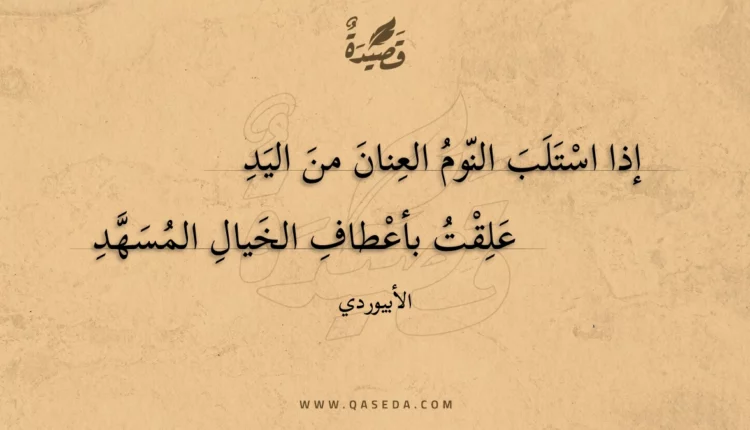 قَصِيدَةٌ
إذا اسْتَلَبَ النّومُ العِنانَ منَ اليَدِ
عَلِقْتُ بأعْطافِ الخَيالِ المُسَهَّدِ
الأبيوردي
WWW.QASEDA.COM